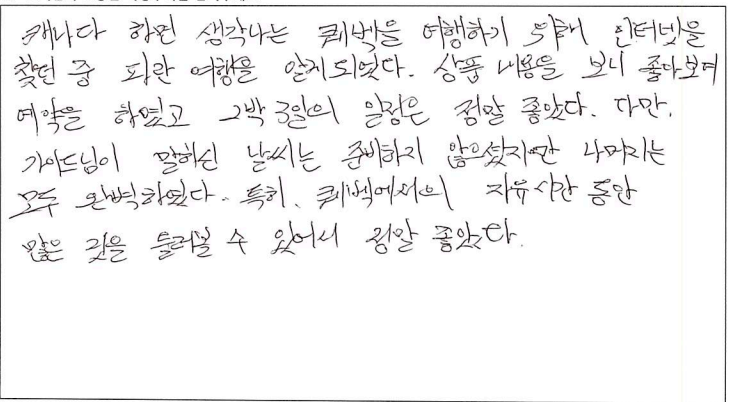 캐나다 하면 생각나는 퀘벡을 여행하기 위해 인터넷을
찾던 중 파란 여행을 알게되었다. 상품 내용을 보니 좋아보여
예약을 하였고 2박 3일의 일정은 정말 좋았다. 다만,
가이드님이 말하신 날씨는 준비하지 않으셨지만 나머지는
모두 완벽하였다. 특히, 퀘벡에서의 자유시간 동안
많은 곳을 둘러볼 수 있어서 정말 좋았다.